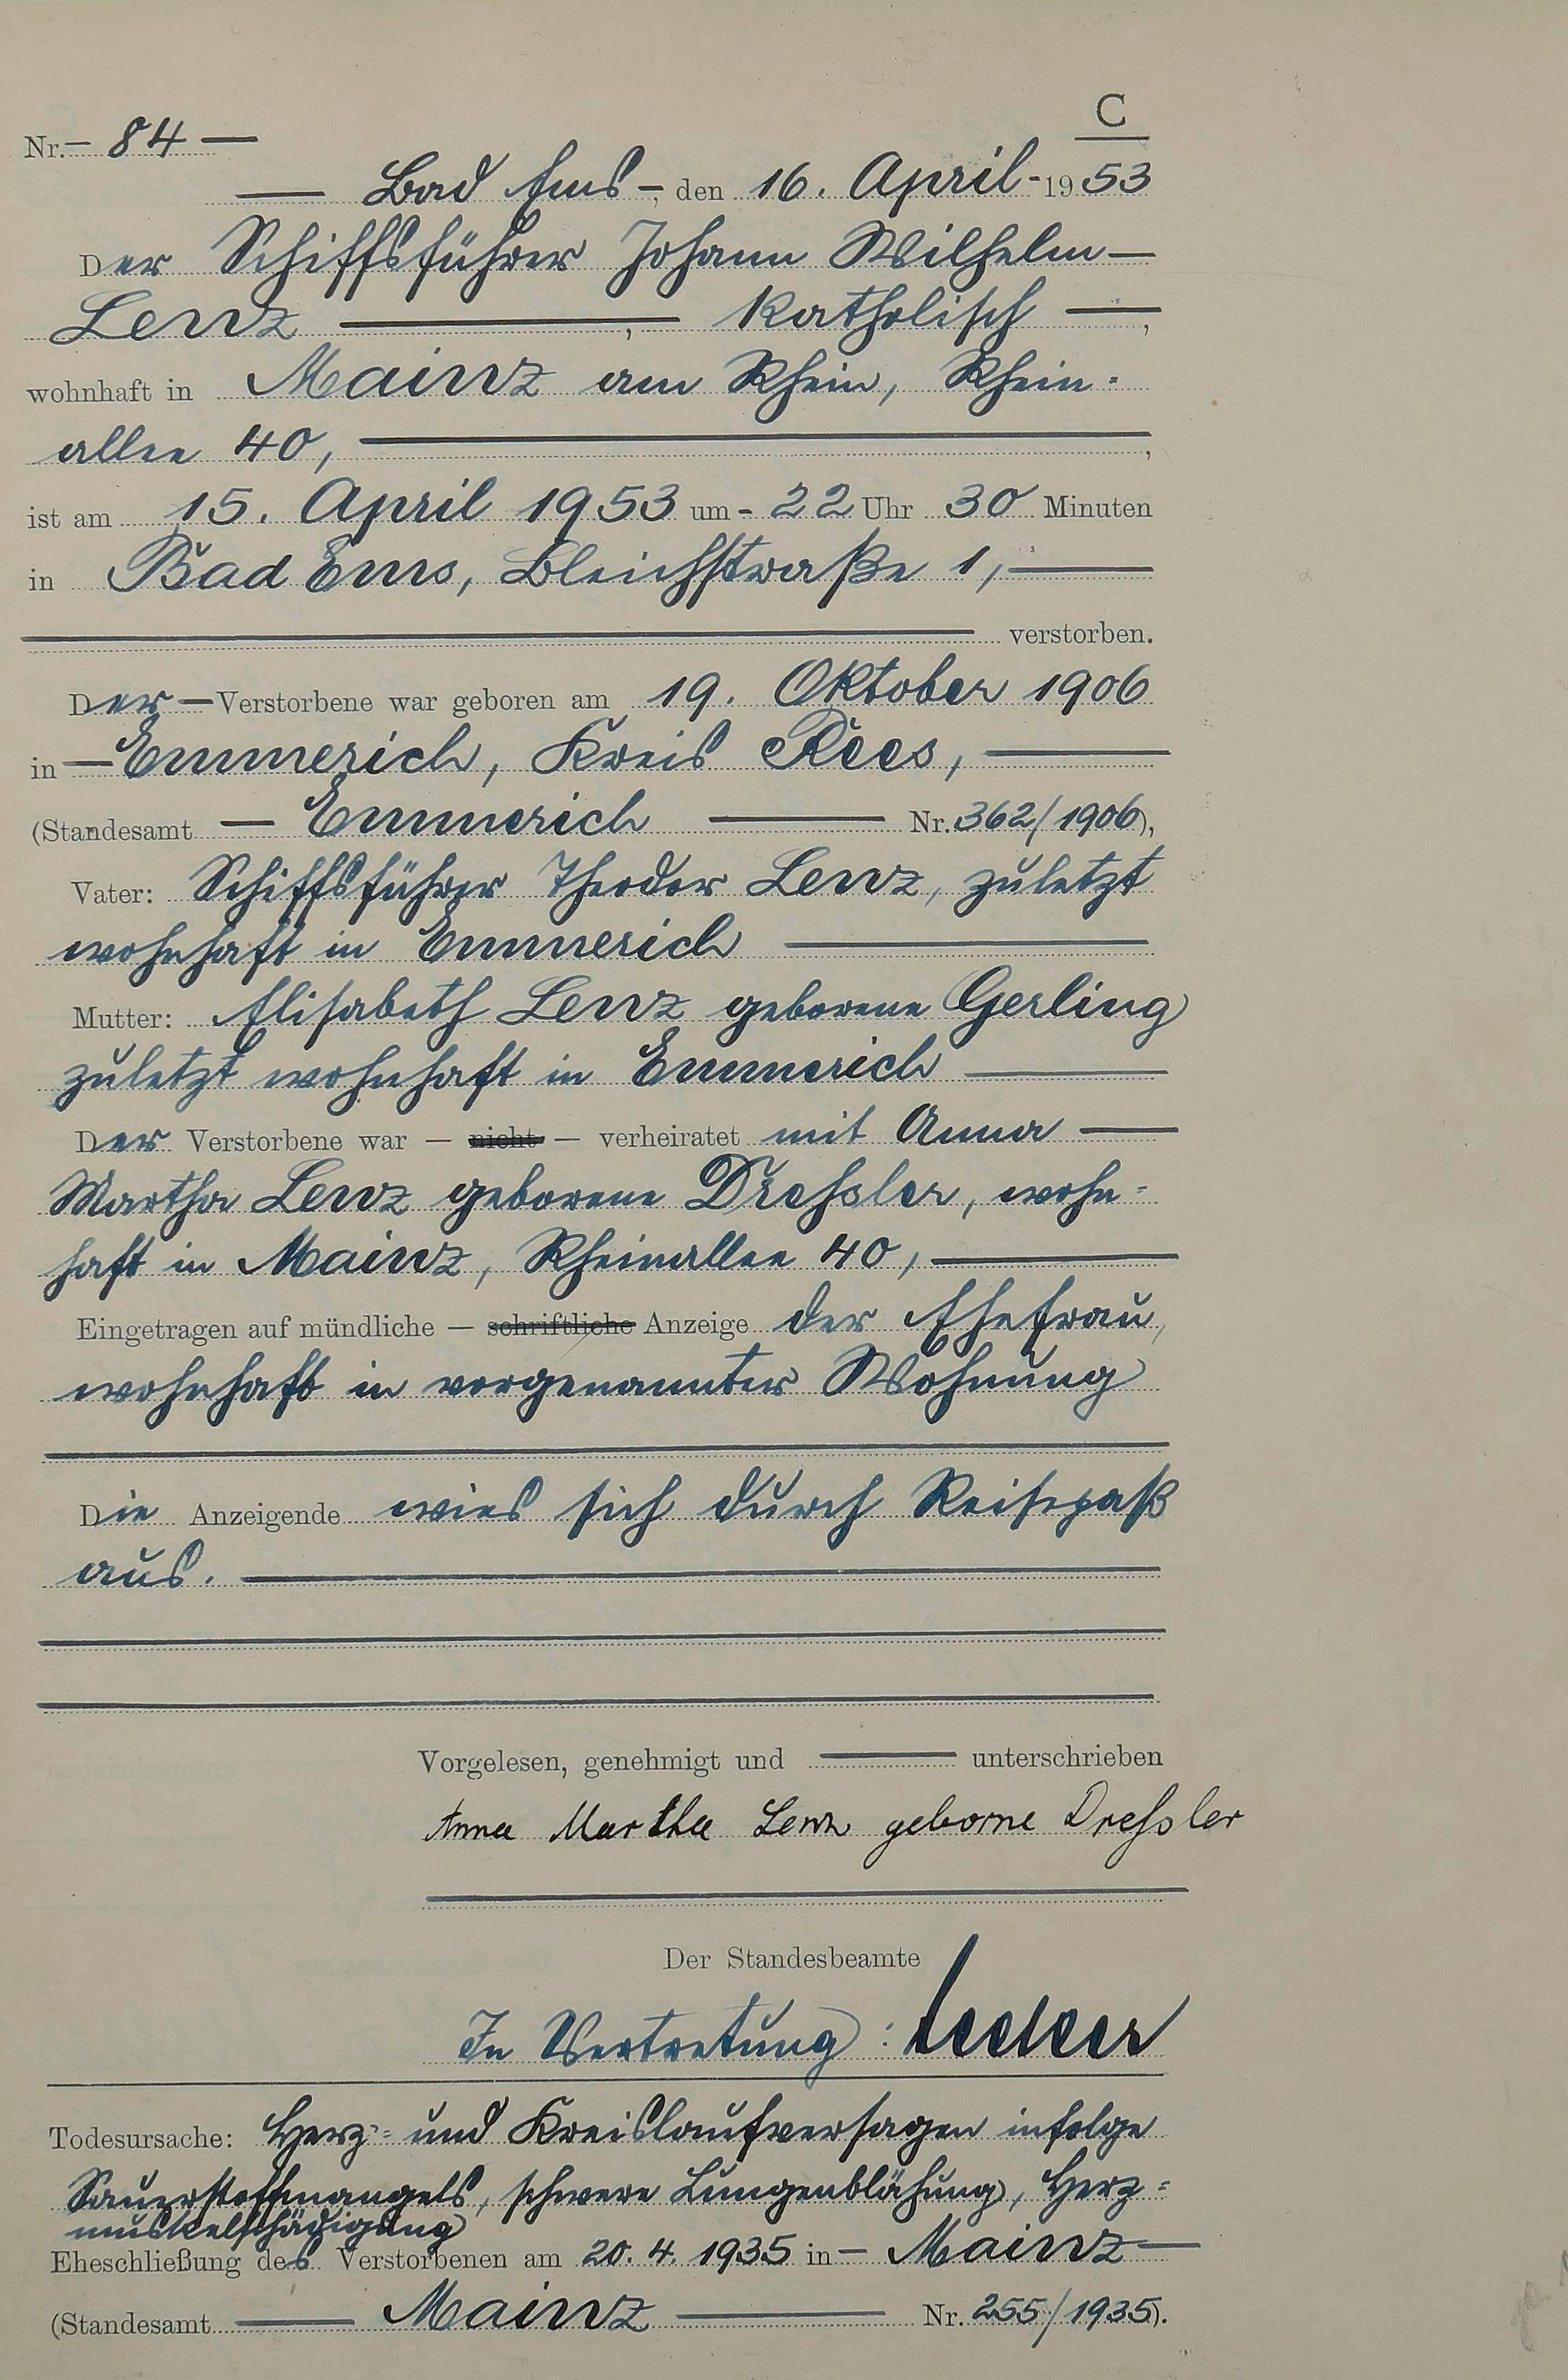 C
Nr. – 84 —
— Bad Ems –, den 16. April - 1953
Der Schiffsführer Johann Wilhelm —
Lenz —, — katholisch —,
wohnhaft in Mainz am Rhein, Rhein-
allee 40, —,
ist am 15. April 1953 um - 22 Uhr 30 Minuten
in Bad Ems, Bleichstraße 1, —
— verstorben.
Der — Verstorbene war geboren am 19. Oktober 1906
in — Emmerich, Kreis Rees, —
(Standesamt — Emmerich — Nr. 362/1906),
Vater: Schiffsführer Theodor Lenz, zuletzt
wohnhaft in Emmerich —
Mutter: Elisabeth Lenz geborene Gerling
zuletzt wohnhaft in Emmerich —
Der Verstorbene war — nicht — verheiratet mit Anna —
Martha Lenz geborene Dressler, wohn-
haft in Mainz, Rheinallee 40, —
Eingetragen auf mündliche — schriftliche Anzeige der Ehefrau,
wohnhaft in vorgenannter Wohnung
Die Anzeigende wies sich durch Reisepaß
aus. —
Vorgelesen, genehmigt und — unterschrieben
Anna Martha Lenz geborne Dressler
Der Standesbeamte
In Vertretung:
Todesursache: Herz- und Kreislaufversagen infolge
Sauerstoffmangels, schwere Lungenblähung, Herz-
muskelschädigung
Eheschließung des Verstorbenen am 20. 4. 1935 in — Mainz —
(Standesamt — Mainz — Nr. 255/1935).